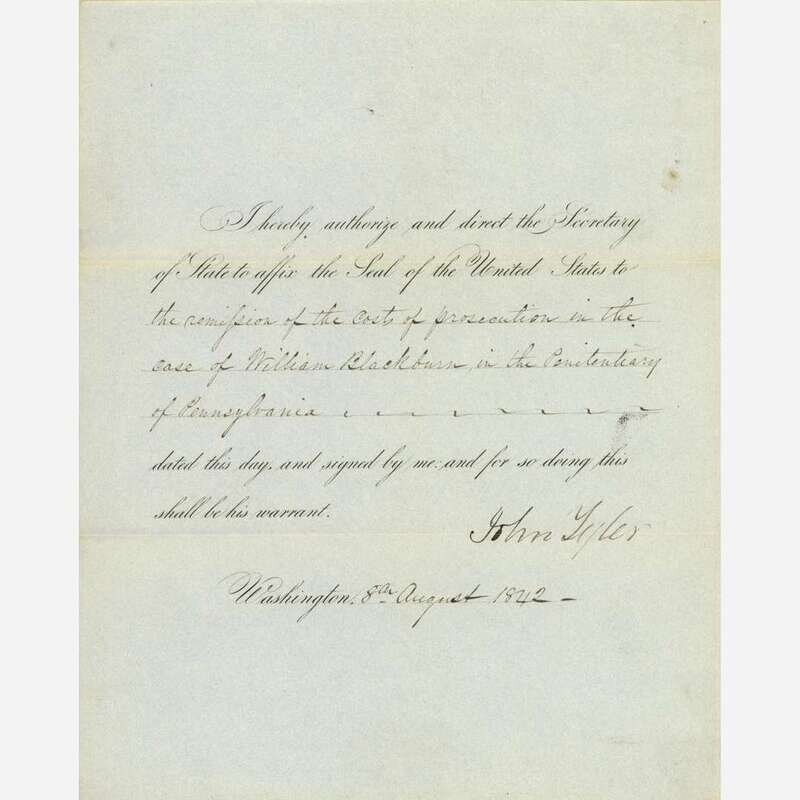 I hereby authorize and direct the Secretary
of State to affix the Seal of the United States to
the remission of the costs of prosecution in the
case of William Blackburn, in the Penitentiary
of Pennsylvania
dated this day, and signed by me: and for so doing this
shall be his warrant.
John Tyler
Washington, 8th August 1842 –